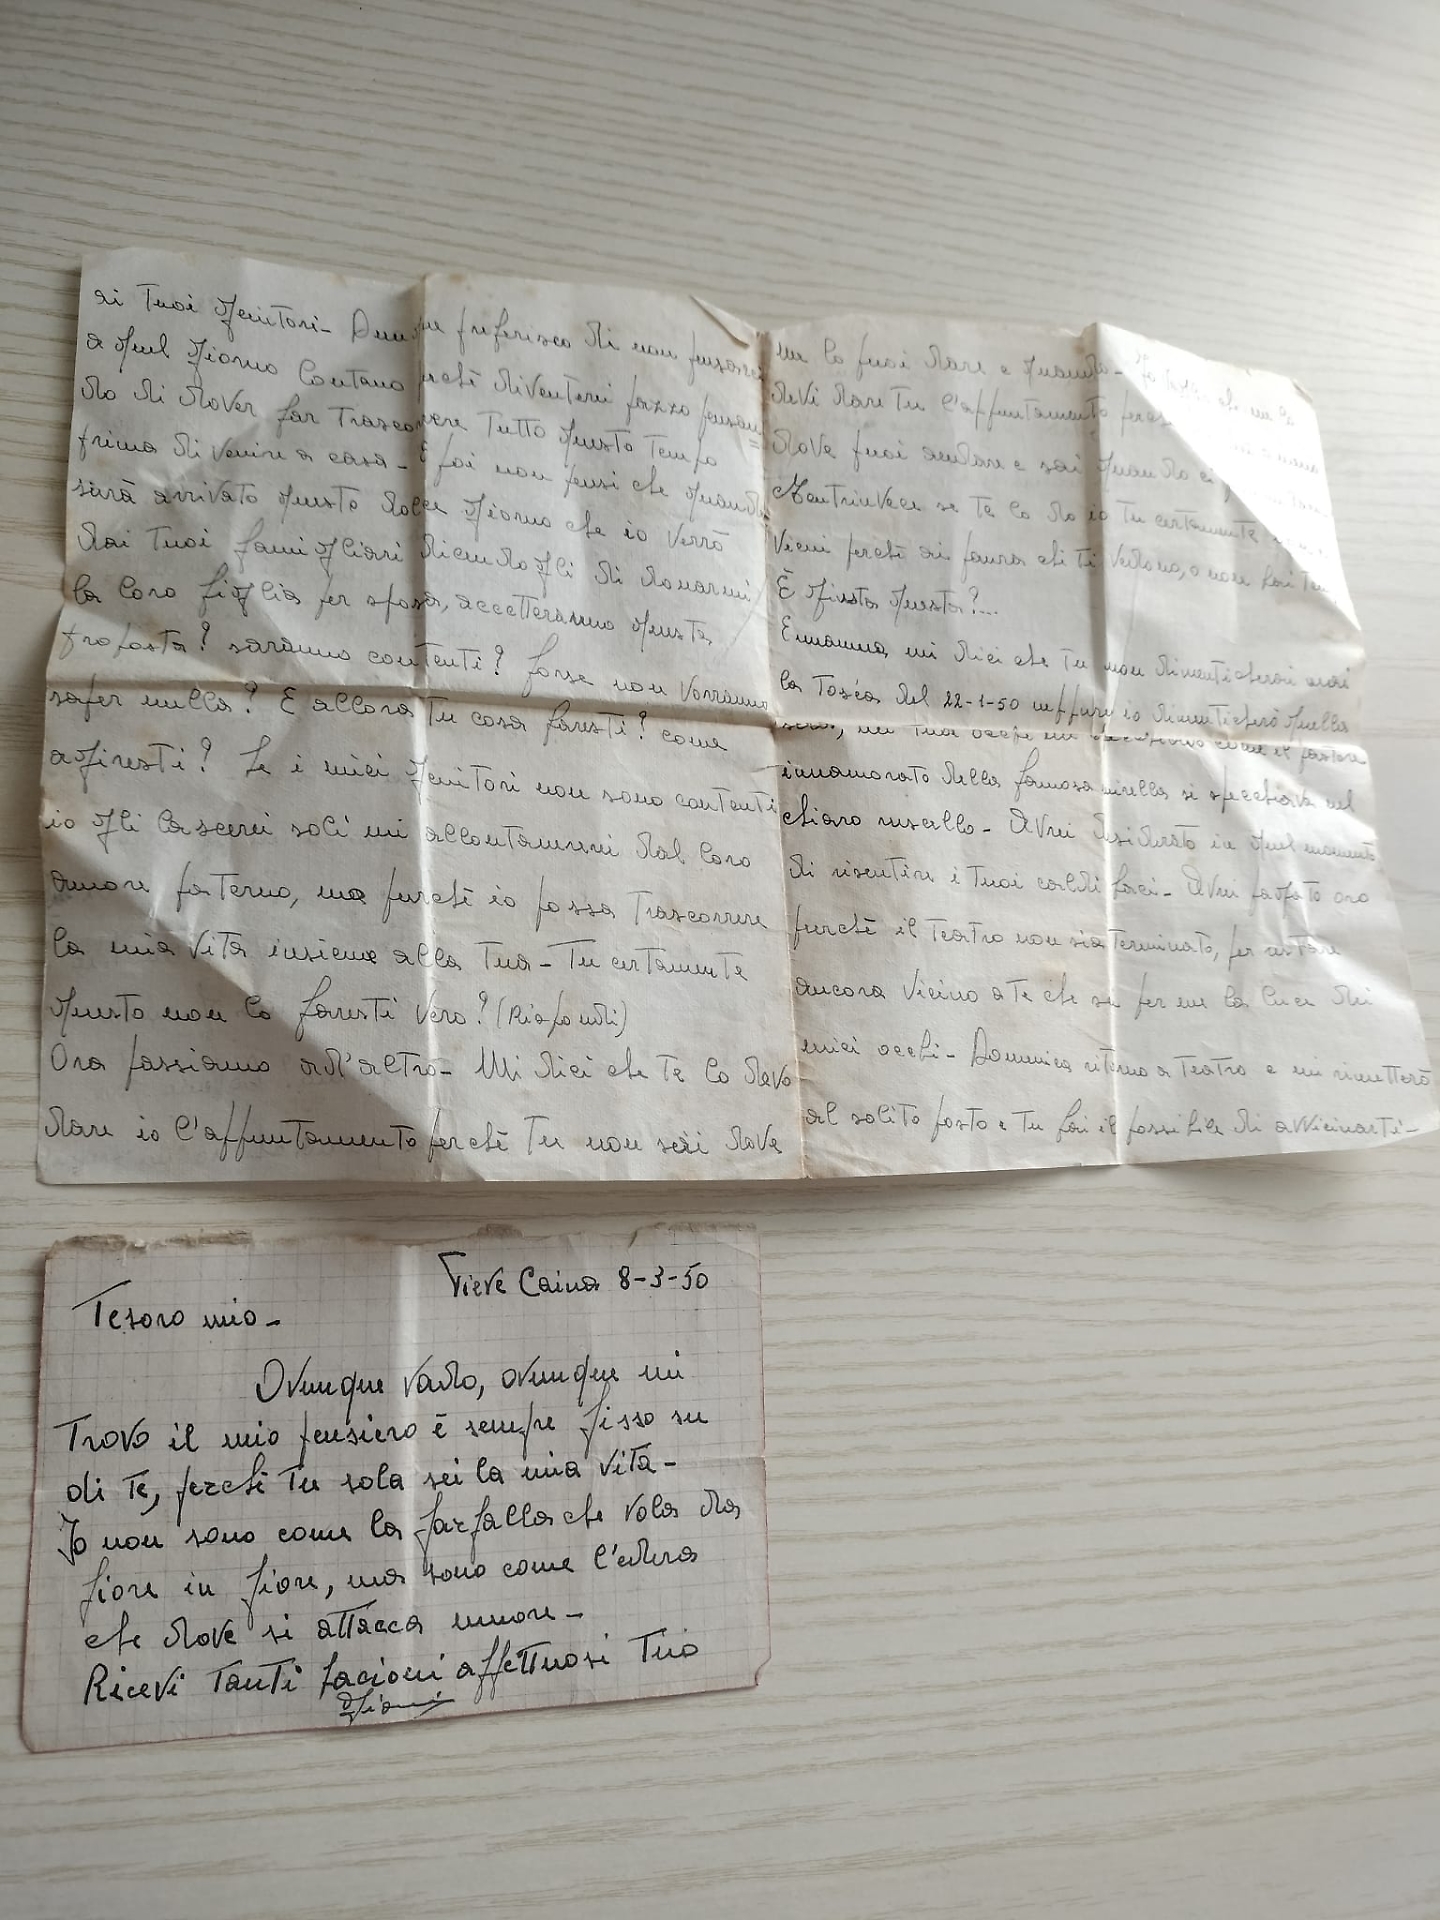 ai tuoi genitori- Dunque preferisco di non pensarci
a quel giorno lontano perchè diventerei pazzo pensan=
do di dover far trascorrere tutto questo tempo
prima di venire a casa- E poi non pensi che quando
sarà arrivato questo dolce giorno che io verrò
dai tuoi famigliari dicendogli di donarmi
la loro figlia per sposa, accetteranno questa
proposta? saranno contenti? forse non vorranno
saper nulla? E allora tu cosa faresti? come
agiresti? Se i miei genitori non sono contenti
io gli lascerei soli mi allontanerei dal loro
amore paterno, ma purchè io possa trascorrere
la mia vita insieme alla tua- Tu certamente
questo non lo faresti vero? (Rispondi)
Ora passiamo ad'altro- Mi dici che te lo devo
dare io l'appuntamento perchè tu non sai dove
me lo puoi dare e quando-
devi dare tu l'appuntamento
dove puoi andare e sai quando ci
Mentrinvece se te lo do io tu certamente
vieni perchè ai paura che ti vedano, o non fai
È giusto questo?...
Emanna, mi dici che tu non dimenticherai mai
la Tosca del 22-1-50 neppure io dimenticherò quella
sera, nei tuoi occhi mi come il pastore
innamorato della famosa mirella si specchiava nel
chiaro ruscello- Avrei desiderato in quel momento
di risentire i tuoi caldi baci- Avrei pagato oro
purchè il teatro non sia terminato, per restare
ancora vicino a te che sei per me la luce dei
miei occhi- Domenica ritorno a teatro e mi rimetterò
al solito posto e tu fai il possibile di avvicinarti-
Pieve Caina 8-3-50
Tesoro mio-
Ovunque vado, ovunque mi
trovo il mio pensiero è sempre fisso su
di te, perchè tu sola sei la mia vita-
Io non sono come la farfalla che vola da
fiore in fiore, ma sono come l'edera
che dove si attacca muore-
Ricevi tanti bacioni affettuosi Tuo